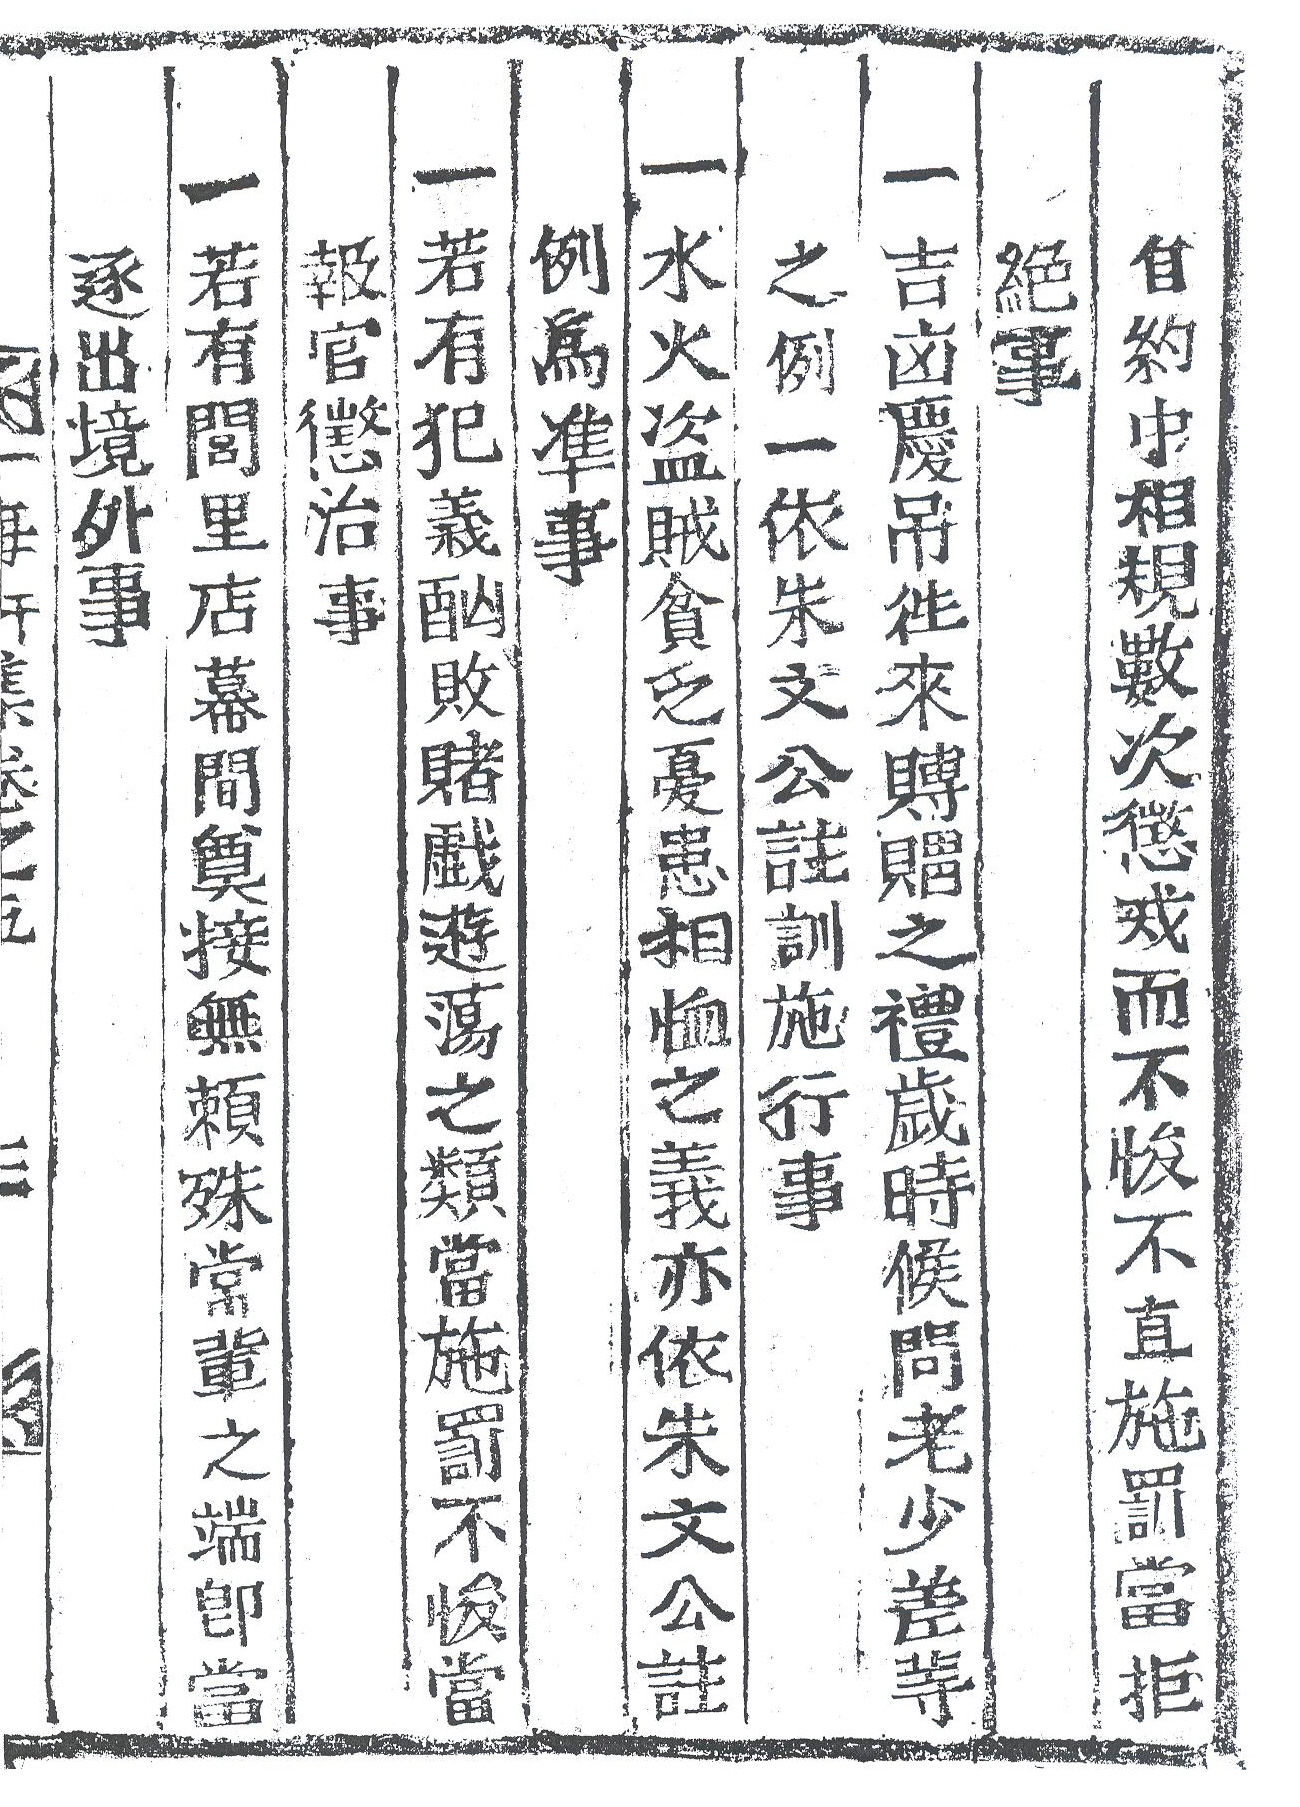 自約中相規數次懲戒而不悛不直施罰當拒
絶事
一吉凶慶吊徃來賻贈之禮歲時候問老少差等
之例一依朱文公註訓施行事
一水火盗賊貧乏憂患相恤之義亦依朱文公註
例爲凖事
一若有犯義酗敗賭戱遊蕩之類當施罰不悛當
報官懲治事
一若有閭里店幕間奠接無賴殊常輩之端卽當
逐出境外事
集卷之五 三